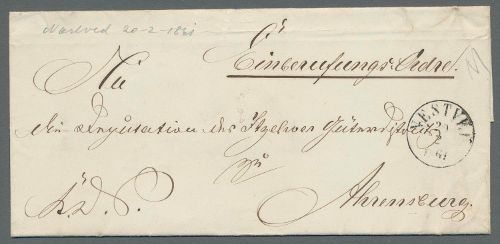 Nestved 20-2-1861
Einberufungs-Ordre.
An
die Deputation des Itzehoer Güterdistricts
NESTVED
20
2
1861
zu
K. D. S.
Ahrensburg.